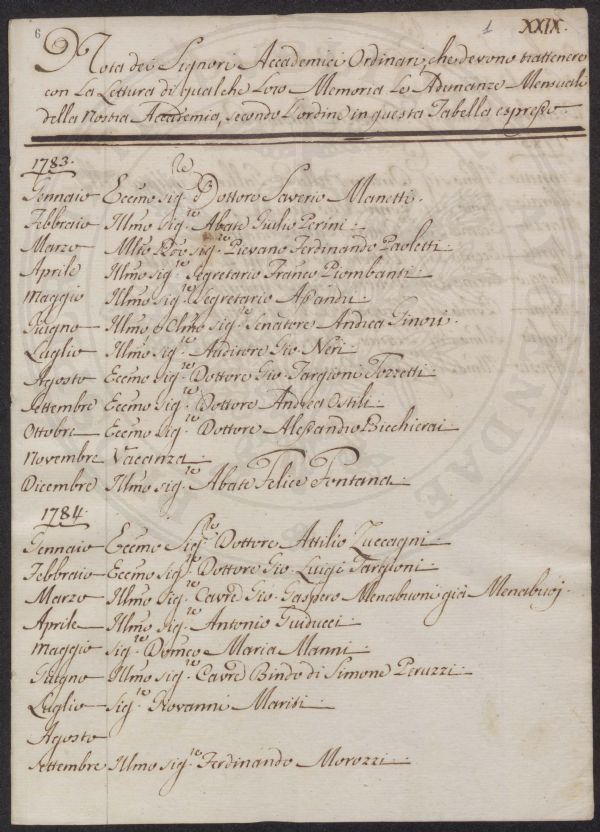 6
1 XXIX.
Nota dei Signori Accademici Ordinari, che devono trattenere
con La Lettura di qualche Loro Memoria Le Adunanze Mensuali
della Nostra Accademia, secondo L'ordine in questa Tabella espresso
1783.
Gennaio Eccmo Sig.re Dottore Saverio Manetti.
Febbraio Illmo Sig.re Abate Giulio Perini
Marzo Mlto Rdo Sig.re Pievano Ferdinando Paoletti
Aprile Illmo Sig.re Segretario Franco Piombanti
Maggio Illmo Sig.re Segretario
Giugno Illmo e Clmo Sig.re Senatore Andrea Ginori.
Luglio Illmo Sig.re Auditore Gio. Neri
Agosto Eccmo Sig.re Dottore Gio. Targioni Tozzetti
Settembre Eccmo Sig.re Dottore Andrea Ostili
Ottobre Eccmo Sig.re Dottore Alessandro Bicchierai
Novembre Vacanza
Dicembre Illmo Sig.re Abate Felice Fontana
1784.
Gennaio Eccmo Sig.re Dottore Attilio Zuccagni
Febbraio Eccmo Sig.re Dottore Gio. Luigi Targioni
Marzo Illmo Sig.re Cavre Gio. Gaspero Menabuoni già Menabuoj.
Aprile Illmo Sig.re Antonio Guiducci
Maggio Sig.re Domco Maria Manni
Giugno Illmo Sig.re Cavre Bindo di Simone Peruzzi
Luglio Sig.re Giovanni Mariti
Agosto
Settembre Illmo Sig.re Ferdinando Morozzi